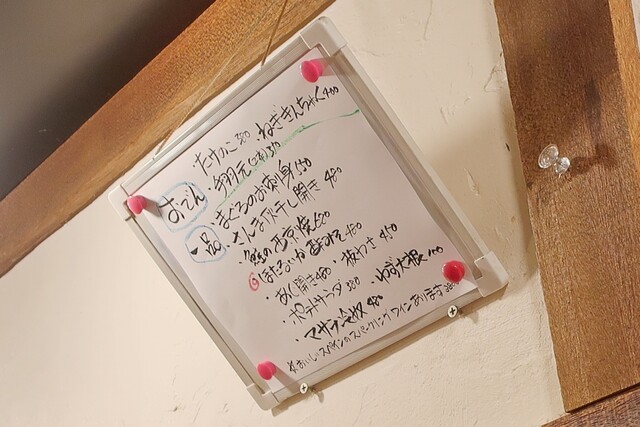 おでん
たけのこ 380 ・ねぎきんちゃく 400
・手羽元(2本) 370
一品
・まぐろのお刺身 550
・さんま丸干し開き 480
・鮭の西京焼 620
ほたるいか酢みそ 450
・あじ開き 480 ・板わさ 450
・ポテトサラダ 380 ・ゆず大根
・マサラ冷奴 480
※おいしいスペインのスパークリングワインあります